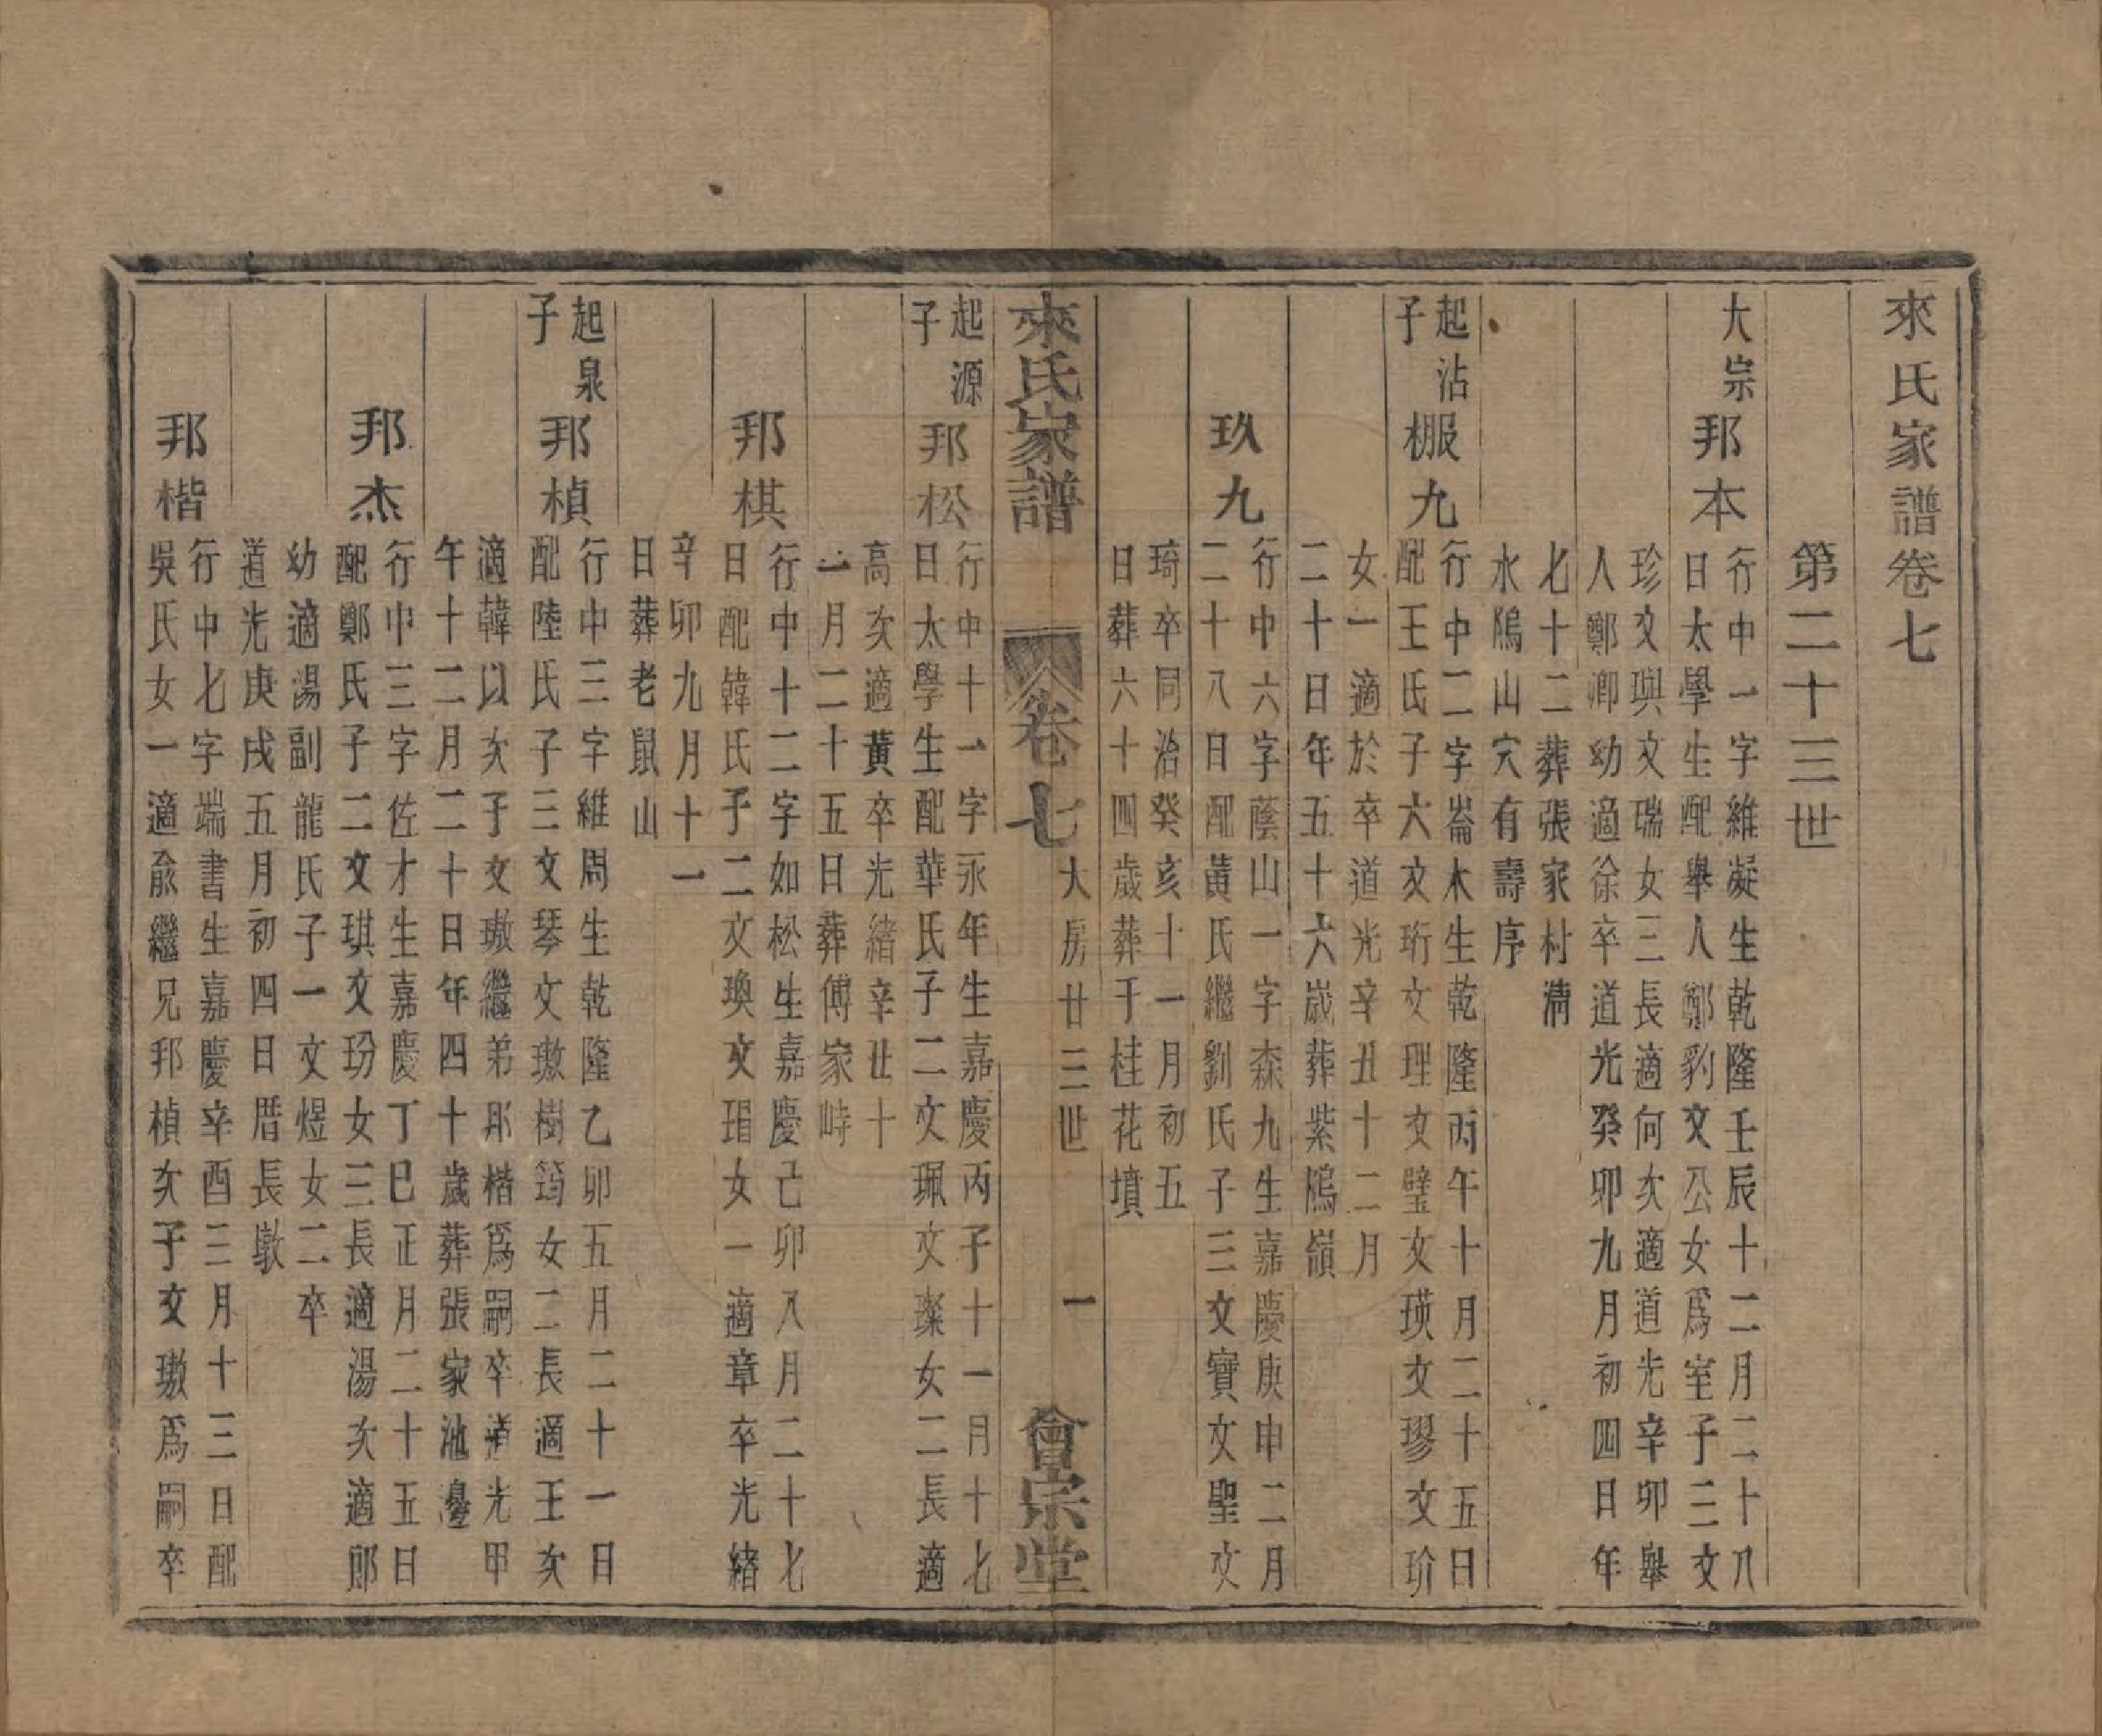 來氏家譜卷七
第二十三世
大宗
邦本
行中一字維凝生乾隆壬辰十二月二十八
日太學生配舉人鄭豹文公女爲室子三文
珍文璵文瑞女三長適何次適道光辛卯舉
人鄭卿幼適徐卒道光癸卯九月初四日年
七十二葬張家村溝
水隖山穴有壽序
起沾
子
棚九
行中二字崙木生乾隆丙午十月二十五日
配王氏子六文珩文理文璧文瑛文璆文玠
女一適於卒道光辛丑十二月
二十日年五十六歲葬紫隖嶺
玖九
行中六字蔭山一字森九生嘉慶庚申二月
二十八日配黃氏繼劉氏子三文寶文聖文
琦卒同治癸亥十一月初五
日葬六十四歲葬于桂花墳
來氏家譜
卷七
大房廿三世
一
會宗堂
起源
子
邦松
行中十一字永年生嘉慶丙子十一月十七
日太學生配華氏子二文珮文璨女二長適
高次適黃卒光緒辛丑十
一月二十五日葬傅家峙
邦棋
行中十二字如松生嘉慶己卯八月二十七
日配韓氏子二文瑍文瑁女一適章卒光緒
辛卯九月十一
日葬老鼠山
起泉
子
邦楨
行中三字維周生乾隆乙卯五月二十一日
配陸氏子三文琴文璈樹筠女二長適王次
適韓以次子文璈繼弟邦楷爲嗣卒道光甲
午十二月二十日年四十歲葬張家池邊
邦杰
行中三字佐才生嘉慶丁巳正月二十五日
配鄭氏子二文琪文玢女三長適湯次適郎
幼適湯副龍氏子一文煜女二卒
道光庚戌五月初四日厝長墩
邦楷
行中七字端書生嘉慶辛酉三月十三日配
吳氏女一適俞繼兄邦楨次子文璈爲嗣卒